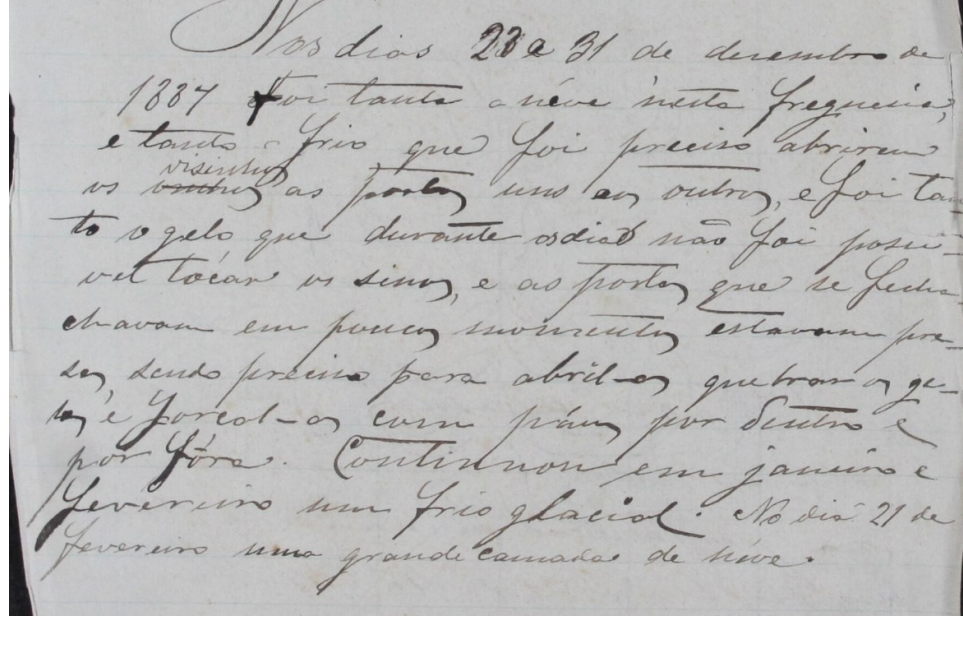 Nos dias 28 a 31 de desembro de
1887 foi tanta a néve nesta freguesia,
e tanto o frio que foi preciso abrirem
os visinhos as portas uns aos outros, e foi tan-
to o gelo que durante os dias não foi possi-
vel tocar os sinos, e as portas que se fecha-
chavam em poucos momentos estavam pre-
sas, sendo preciso para abril-as quebrar os ge-
los, e forcal-as com páus por dentro e
por fóra. Continuou em janeiro e
fevereiro um frio glacial. No dia 21 de
fevereiro uma grande camada de néve.